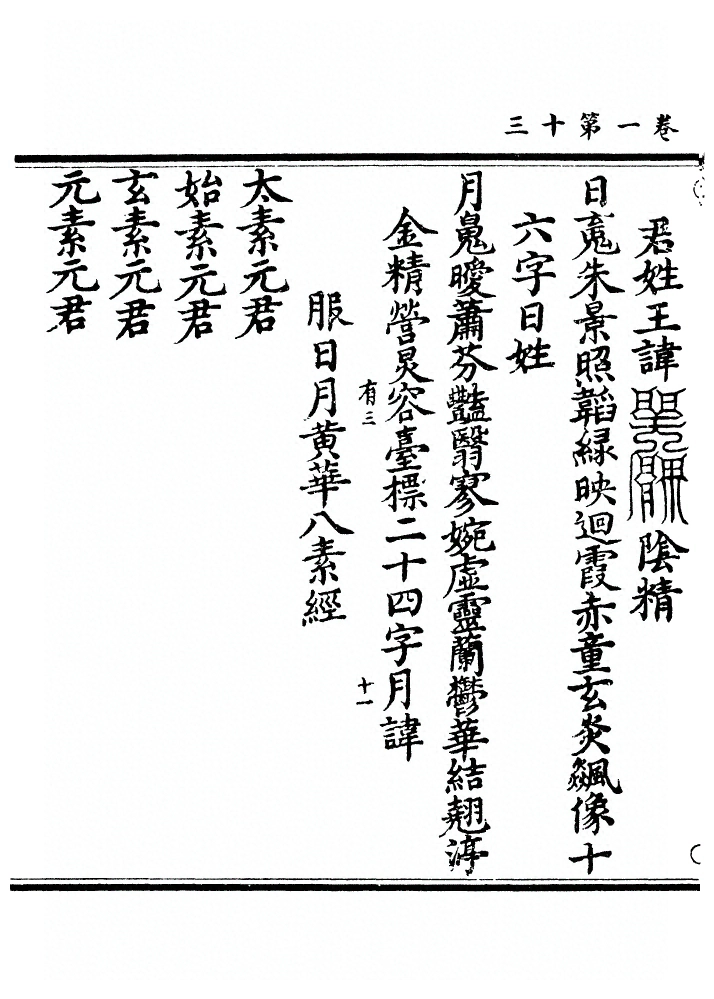 卷一第十三
君姓王諱陰精
日䰟朱景照韜緑映迴霞赤童玄炎飈像十
六字日姓
月魄曖蕭芬豔翳寥婉虛靈蘭鬱華結翹淳
金精營炅容臺標二十四字月諱
有三
十一
服日月黃華八素經
太素元君
始素元君
玄素元君
元素元君